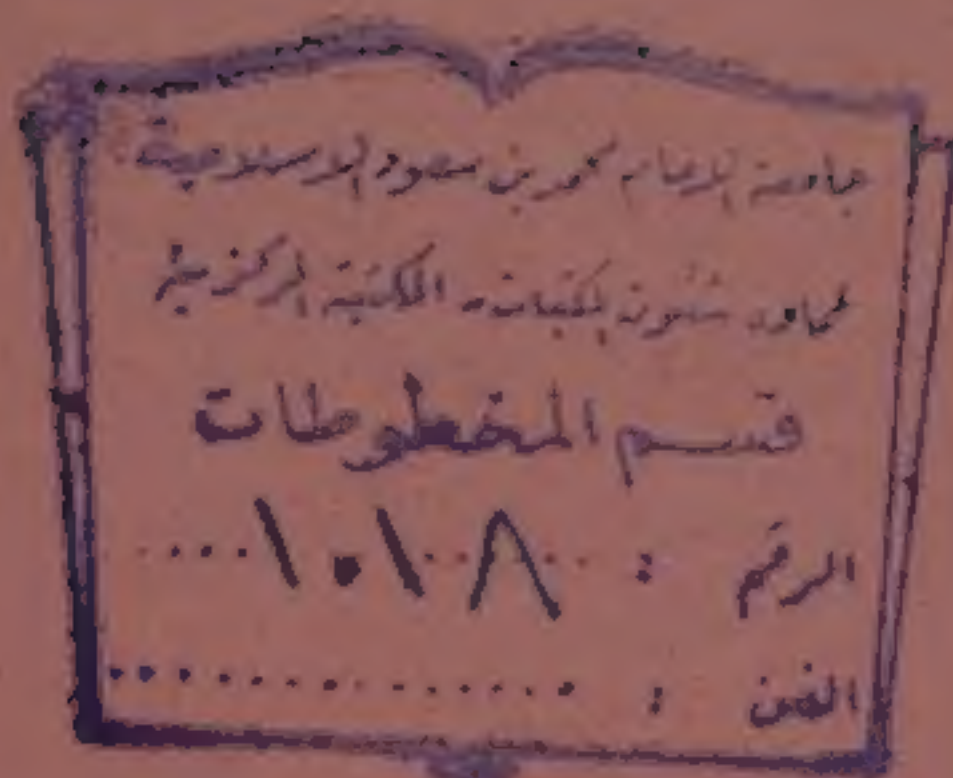 جامعة الإمام محمد بن سعود الإسلامية
عمادة شئون المكتبات - المكتبة المركزية
قسم المخطوطات
الرقم : ١٠١٨
الفن :